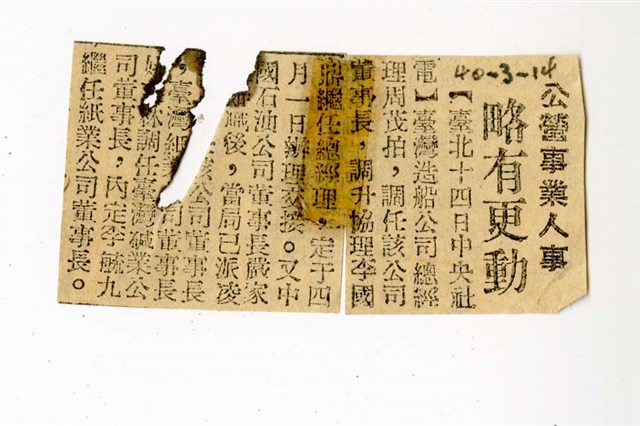 40-3-14
公營事業人事
略有更動
【臺北十四日中央社
電】臺灣造船公司總經
理周茂柏，調任該公司
董事長，調升協理李國
鼎繼任總經理，定于四
月一日辦理交接。又中
國石油公司董事長嚴家
辭職後，當局已派凌
該公司董事長
，臺灣紙業公司董事長
林調任臺灣碱業公
司董事長，內定李毓九
繼任紙業公司董事長。